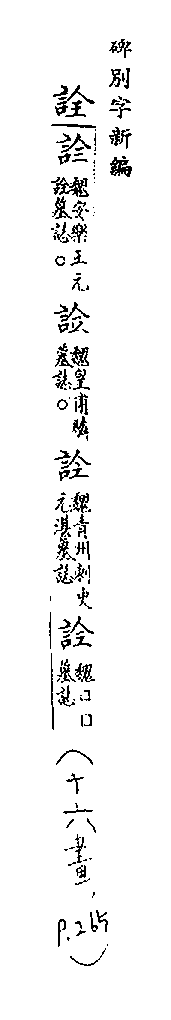 碑別字新編
詮
詮 魏安樂王元
詮墓誌。
詮 魏皇甫驎
墓誌。
詮 魏青州刺史
元湛墓誌
詮 魏口口
墓誌
(十六畫,
P.265)